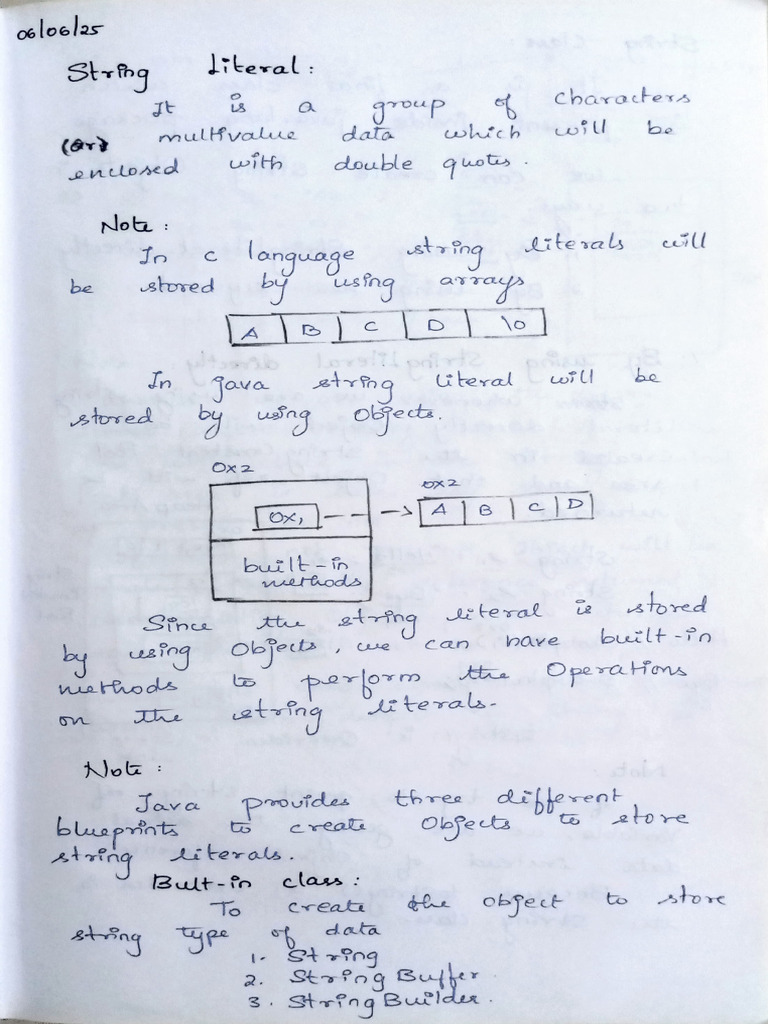 06/06/25
String Literal:
It is a group of characters
(or) multivalue data which will be
enclosed with double quotes.
Note:
In c language string literals will
be stored by using arrays
A B C D \0
In java string literal will be
stored by using Objects.
0x2
0x2
0x1 A B C D
built-in
methods
Since the string literal is stored
by using Objects, we can have built-in
methods to perform the Operations
on the string literals.
Note:
Java provides three different
blueprints to create Objects to store
string literals.
Bult-in class:
To create the object to store
string type of data
1. String
2. String Buffer.
3. String Builder.